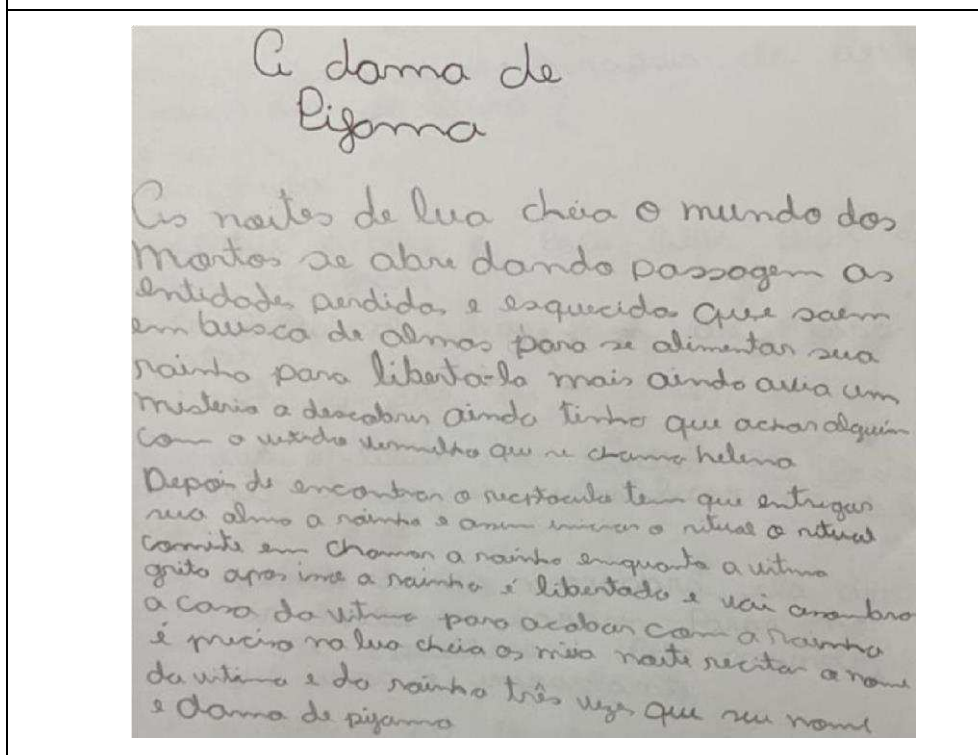 A dama de
Pijama
As noites de lua cheia o mundo dos
mortos se abre dando passagem as
entidades perdidas e esquecidas que saem
em busca de almas para se alimentar sua
rainha para liberta-la mais ainda avia um
misterio a descobrir ainda tinha que achar alguém
com o vestido vermelho que se chama helena
Depois de encontrar o receptaculo tem que entregar
sua alma a rainha e assim iniciar o ritual o ritual
em chamar a rainha enquanto a vitima
grita apos isso a rainha é libertada e vai
a casa da vitima para acabar com a rainha
é preciso na lua cheia as meia noite recitar o nome
da vitima e da rainha três vezes que seu nome
e dama de pijama